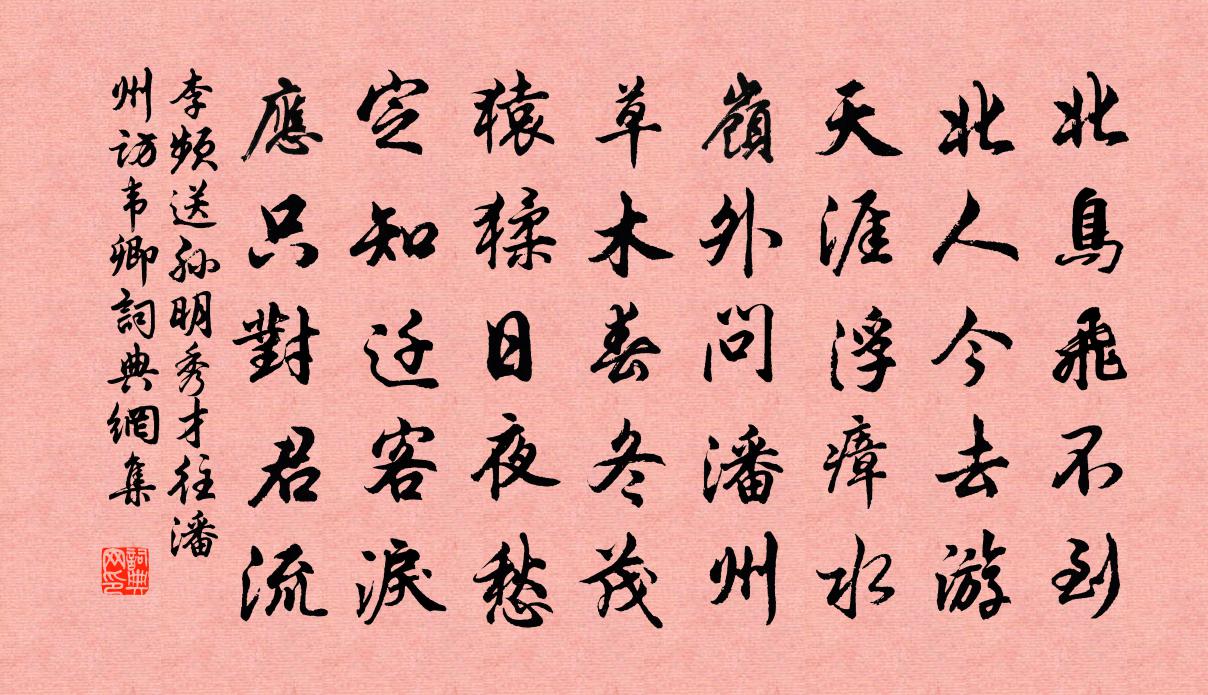 北鳥飛不到
北人今去游
天涯浮瘴水
嶺外問潘州
草木春冬茂
猿猱日夜愁
定知迁客淚
應只對君流
李頻送孫明秀才往潘
州訪韦卿詞典網集
詞典网印